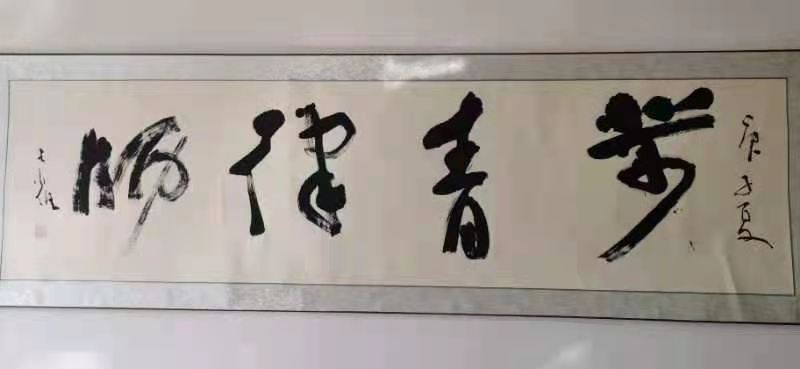 庚子夏
步青律师